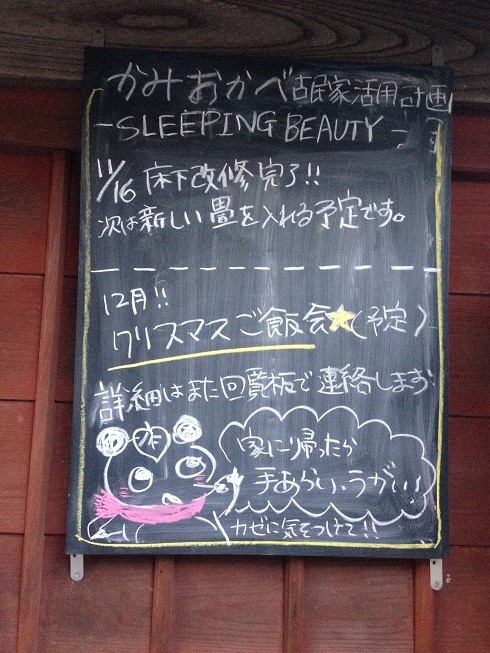 かみおかべ古民家活用計画
-SLEEPING BEAUTY-
11/16 床下改修完了!!
次は新しい畳を入れる予定です。
12月!!
クリスマスご飯会★(予定)
詳細はまた回覧板で連絡します!
家に帰ったら
手あらい、うがい!!
カゼに気をつけて!!